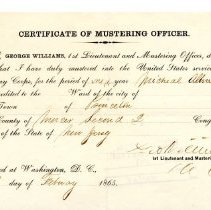 CERTIFICATE OF MUSTERING OFFICER.
GEORGE WILLIAMS, 1st Lieutenant and Mustering Officer,
that I have duly mustered into the United States service
Corps, for the period of one year Micheal
credited to the Ward of the city of
Town of Princeton
County of Mercer Second D Cong
of the State of New Jersey
1st Lieutenant and Muster
at Washington, D. C.
day of 1865.